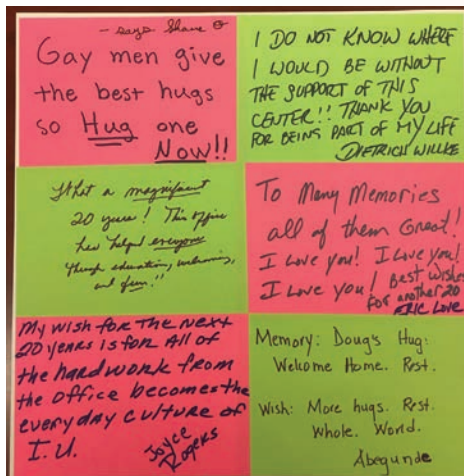 - says Shane
Gay men give
the best hugs
so Hug one
Now!!
I DO NOT KNOW WHERE
I WOULD BE WITHOUT
THE SUPPORT OF THIS
CENTER!! THANK YOU
FOR BEING PART OF MY LIFE
DIETRICH WILLKE
What a magnificent
20 years! This office
has helped everyone
through education, welcoming,
and fun!!
To Many Memories
all of them Great!
I love you! I love you!
I love you! Best Wishes
for another 20
ERIC LOVE
My wish for the next
20 years is for All of
the hardwork from
the office becomes the
everyday culture of
I.U.
Joyce
Rogers
Memory: Doug's Hug.
Welcome Home. Rest.
Wish: More hugs. Rest.
Whole. World.
Abegunde